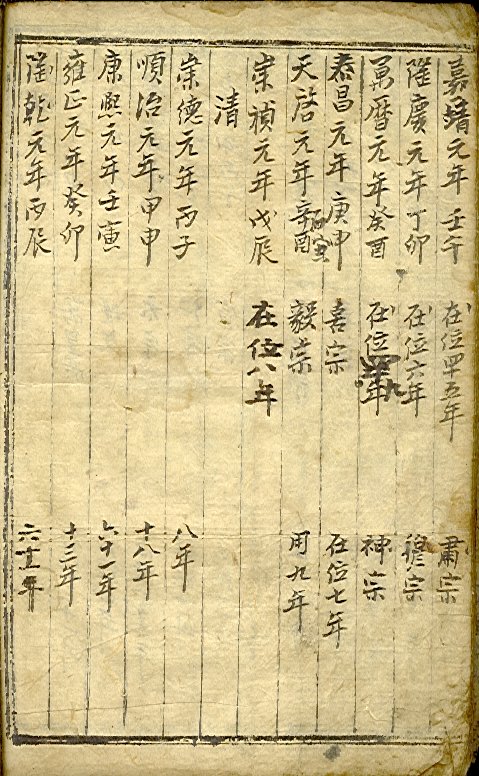 嘉靖元年 壬午 在位四十五年 肅宗
隆慶元年 丁卯 在位六年 穆宗
萬曆元年癸酉 在位年 神宗
泰昌元年 庚申 喜宗 在位七年
天啓元年辛酉 毅宗 用九年
崇禎元年 戊辰 在位八年
清
崇德元年 丙子 八年
順治元年 甲申 十八年
康熙元年壬寅 六十一年
雍正元年 癸卯 十三年
乾隆元年 丙辰 六十年